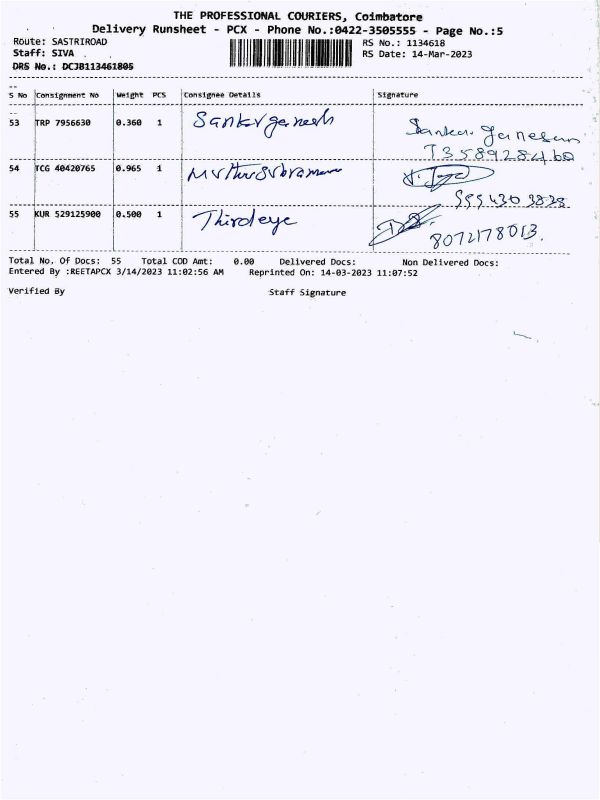 THE PROFESSIONAL COURIERS, Coimbatore
Delivery Runsheet - PCX - Phone No.:0422-3505555 - Page No.:5
Route: SASTRIROAD
RS No.: 1134618
Staff: SIVA
RS Date: 14-Mar-2023
DRS No.: DCJB113461805
S No Consignment No Weight PCS Consignee Details Signature
53 TRP 7956630 0.360 1 Sankarganesh Sankar Ganesan
54 TCG 40420765 0.965 1 Muthusubramani
55 KUR 529125900 0.500 1 Thirdeye
8072178013.
Total No. Of Docs: 55 Total COD Amt: 0.00 Delivered Docs: Non Delivered Docs:
Entered By :REETAPCX 3/14/2023 11:02:56 AM Reprinted On: 14-03-2023 11:07:52
Verified By Staff Signature